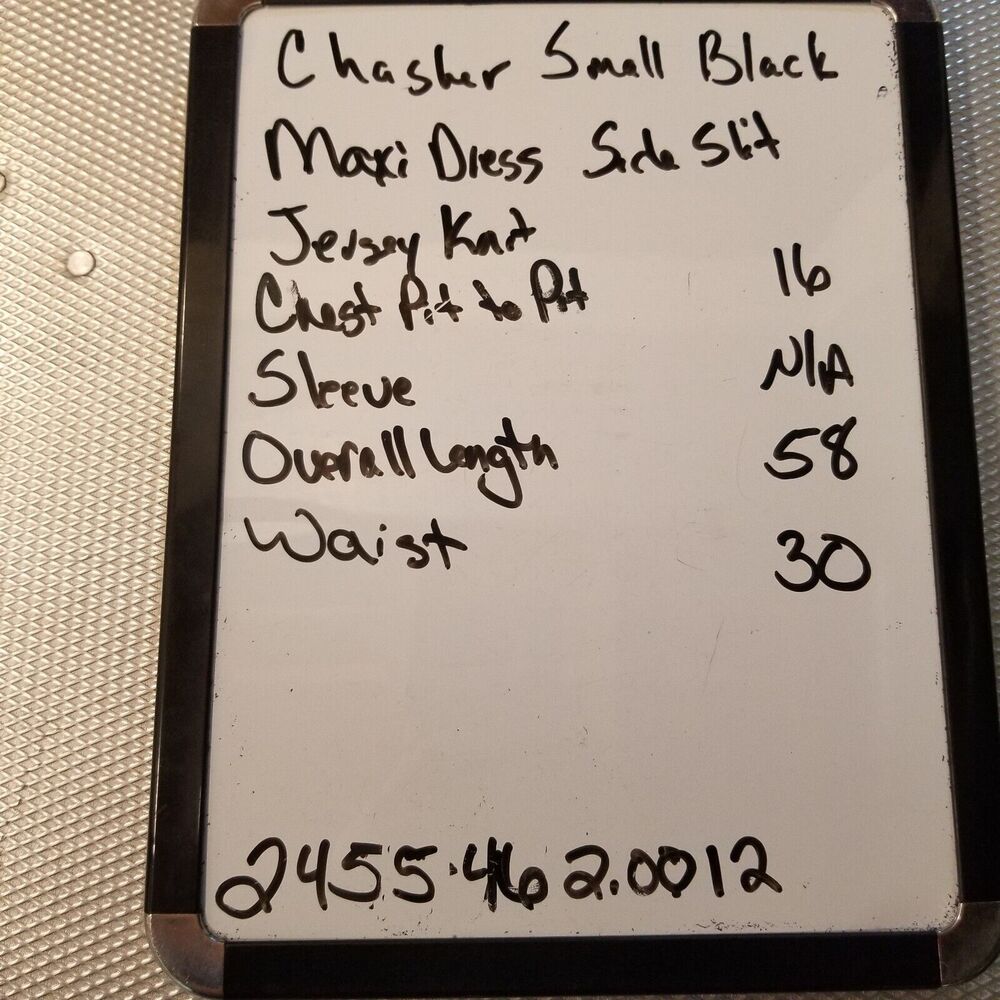 Chasher Small Black
Maxi Dress Side Slit
Jersey Knit
Chest Pit to Pit 16
Sleeve N/A
Overall Length 58
Waist 30
2455.462.0012